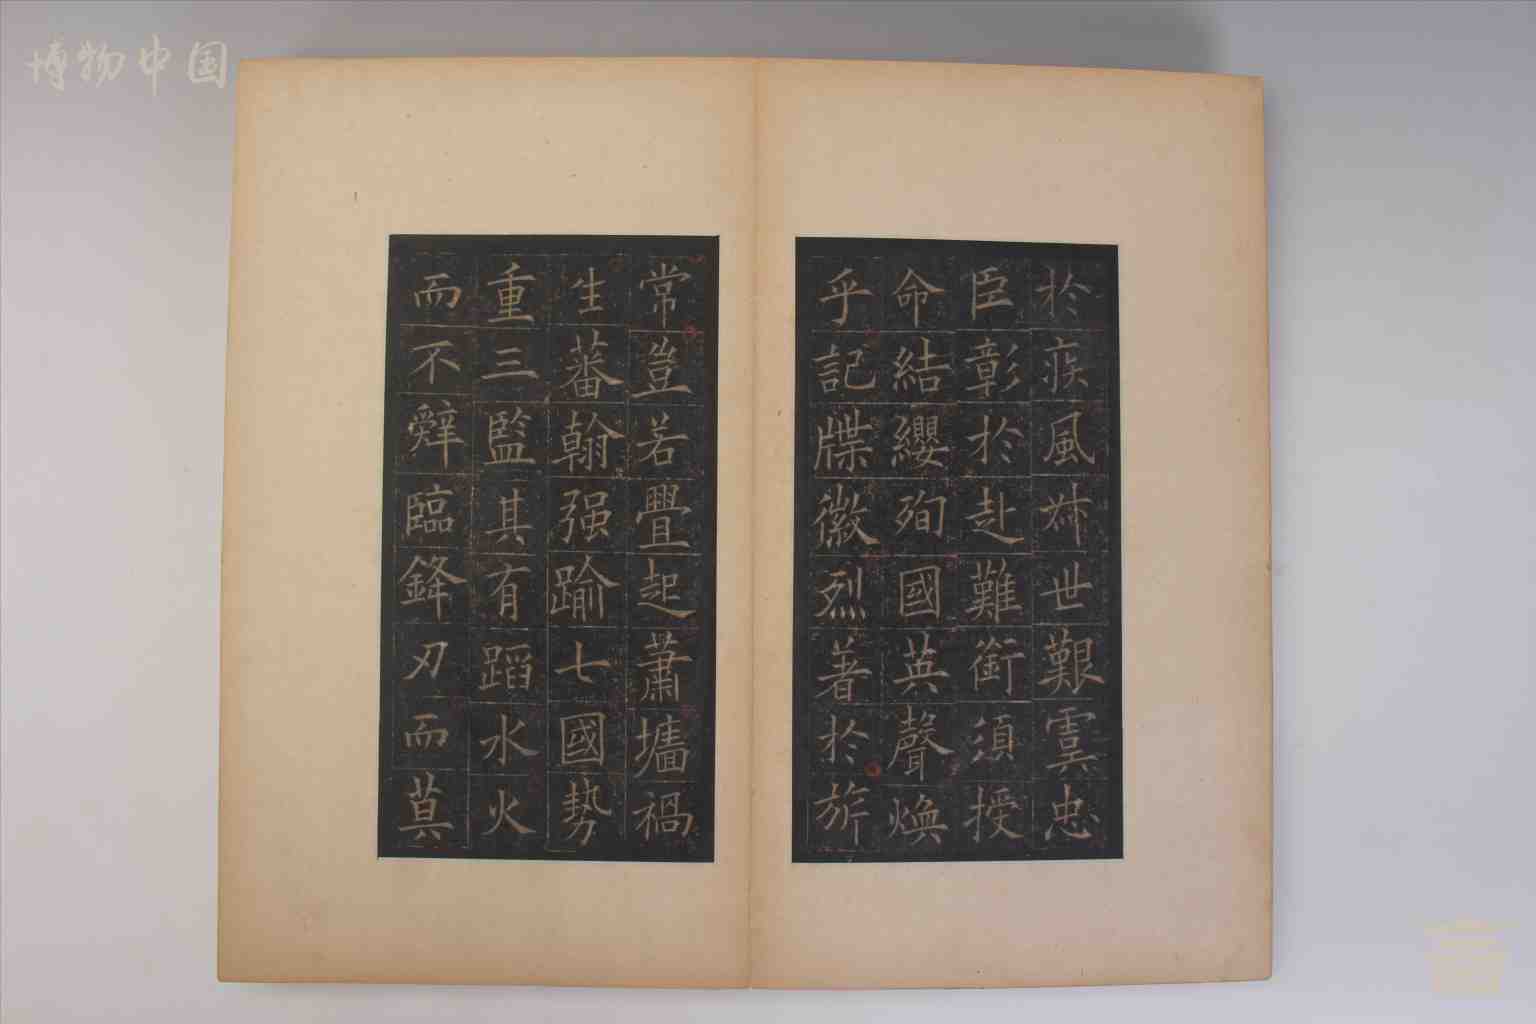 博物中国
於疾風烑世艱虞忠
臣彰於赴難銜須授
命結纓殉國英聲煥
乎記牒徽烈著於旂
常豈若舋起蕭墻禍
生蕃翰强踰七國勢
重三監其有蹈水火
而不辤臨鋒刃而莫